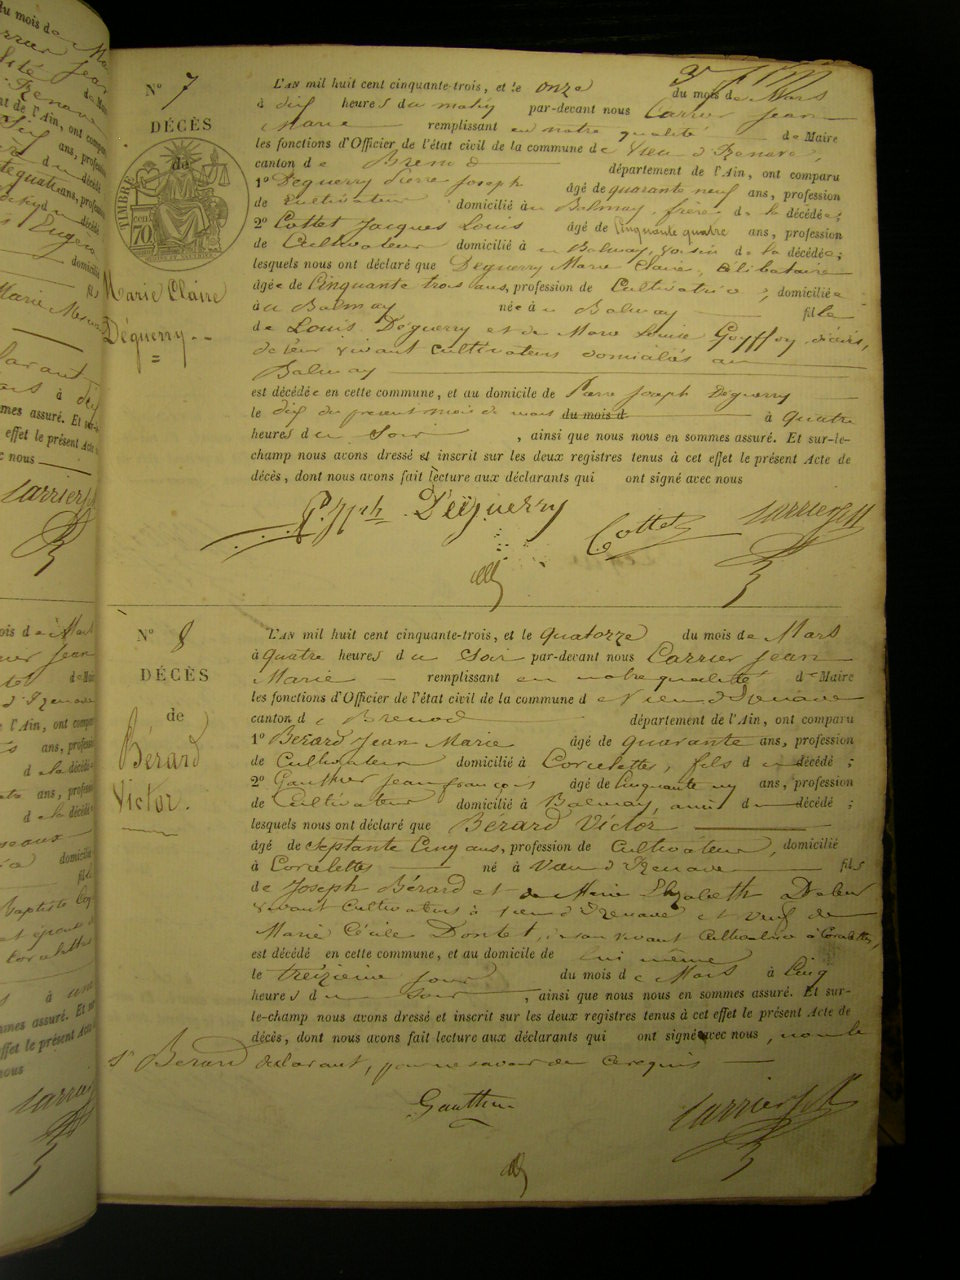 N° 7
DÉCÈS
de
TIMBRE
cen
70
Marie Claire
Déguerry
L'AN mil huit cent cinquante-trois, et le onze du mois de Mars
à dix heures du matin par-devant nous Carrier Jean
Marie remplissant en notre qualité de Maire
les fonctions d'Officier de l'état civil de la commune de Vieu d'Izenave,
canton de Brenod département de l'Ain, ont comparu
1° Déguerry Pierre Joseph âgé de quarante neuf ans, profession
de Cultivateur domicilié à Balmay, frère de la décédée;
2° Cottet Jacques Louis âgé de Cinquante quatre ans, profession
de Cultivateur domicilié à Balmay, voisin de la décédée;
lesquels nous ont déclaré que Déguerry Marie Claire, Célibataire
âgée de Cinquante trois ans, profession de Cultivatrice, domiciliée
à Balmay née à Balmay fille
de Louis Déguerry et de Marie Louise Goyffoy, décédés,
de leur vivant cultivateurs domiciliés au
Balmay
est décédée en cette commune, et au domicile de Pierre Joseph Déguerry
le dix du présent mois de mars du mois d à quatre
heures du Soir, ainsi que nous nous en sommes assuré. Et sur-le-
champ nous avons dressé et inscrit sur les deux registres tenus à cet effet le présent Acte de
décès, dont nous avons fait lecture aux déclarants qui ont signé avec nous
Déguerry Cottet Carrier
N° 8
DÉCÈS
de
Bérard
Victor.
L'AN mil huit cent cinquante-trois, et le quatorze du mois de Mars
à quatre heures du Soir par-devant nous Carrier Jean
Marie remplissant en notre qualité de Maire
les fonctions d'Officier de l'état civil de la commune de Vieu d'Izenave
canton de Brenod département de l'Ain, ont comparu
1° Bérard Jean Marie âgé de quarante ans, profession
de Cultivateur domicilié à Corcelettes, fils du décédé;
2° Gauthier Jean François âgé de Cinquante un ans, profession
de Cultivateur domicilié à Balmay, ami du décédé;
lesquels nous ont déclaré que Bérard Victor
âgé de Septante Cinq ans, profession de Cultivateur domicilié
à Corcelettes né à Vieu d'Izenave fils
de Joseph Bérard et de Marie Elizabeth De leur
vivant Cultivateurs à Vieu d'Izenave et Veuf de
Marie Cécile Dontet, de son vivant Cultivatrice à Corcelettes,
est décédé en cette commune, et au domicile de lui même
le treizième jour du mois de Mars à Cinq
heures du Soir, ainsi que nous nous en sommes assuré. Et sur-
le-champ nous avons dressé et inscrit sur les deux registres tenus à cet effet le présent Acte de
décès, dont nous avons fait lecture aux déclarants qui ont signé avec nous, non le
s. Berard déclarant, pour ne savoir de ce requis
Gauthier Carrier